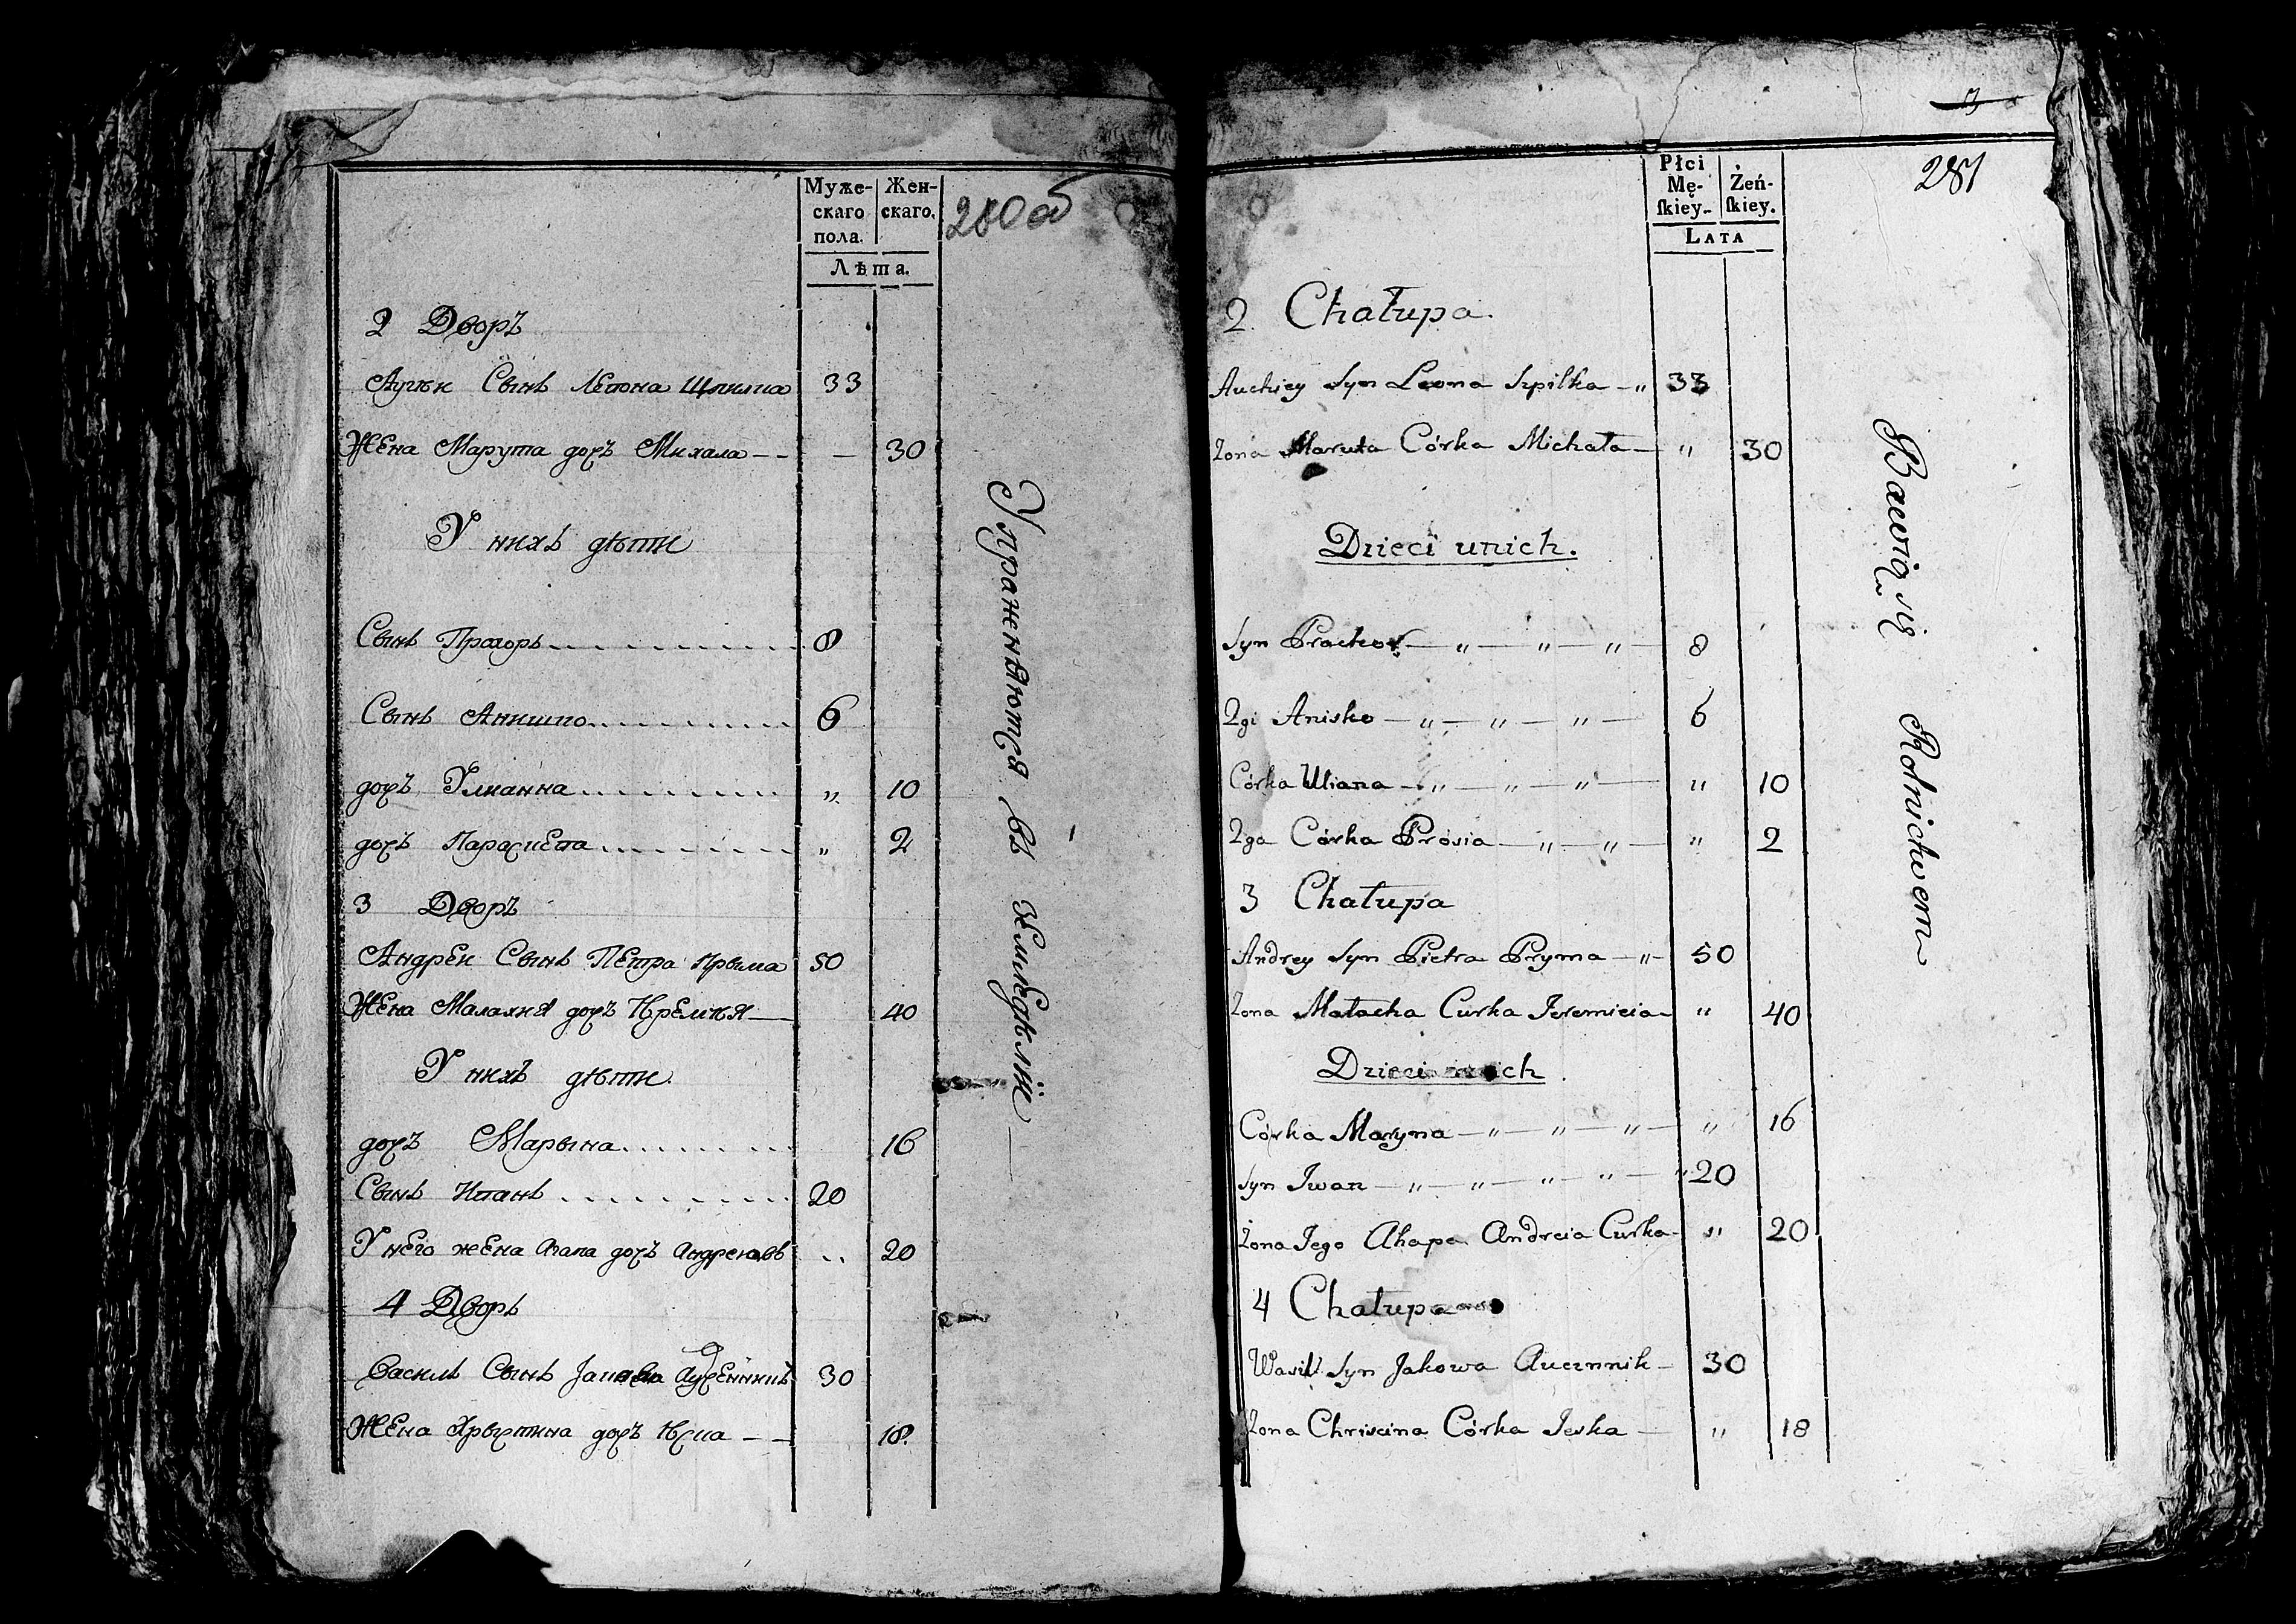 Муже-
скаго
пола.
Жен-
скаго.
Лѣта.
280об
2 Дворъ
Аугѣй Сынъ Леона Шпилка 33
Жена Марута дочъ Михала — — — 30
У нихъ дѣти
Сынъ Прохоръ 8
Сынъ Анишко 6
дочъ Улианна „ 10
дочъ Параскева „ 2
3 Дворъ
Андрей Сынъ Петра Прыма 50
Жена Малахия дочъ Иремия — 40
У нихъ дѣти
дочъ Марына 16
Сынъ Иванъ 20
У него жена Агапа дочъ 20
4 Дворъ
Василь Сынъ 30
Жена Хрыстина дочъ Иска — — 18
Упражняются въ земледѣліи —
Płci
Mę-
ſkiey.
Żeń-
ſkiey.
Lata
3
281
2. Chałupa.
Auchiey Syn Leona Szpilka — „ 33
Żona Maruta Córka Michała — „ 30
Dzieci unich.
Syn Prachor — „ — „ — „ — 8
2gi Anisko — „ — „ — „ — 6
Córka Uliana — „ — „ — „ — „ 10
2ga Córka Prosia — „ — „ — „ 2
3 Chałupa
Andrey Syn Pietra Pryma — „ — 50
Żona Małacha Curka Jeremieia — „ 40
Dzieci unich
Córka Maryna — „ — „ — „ — „ 16
Syn Iwan — „ — „ — „ — „ — „ 20
Żona Jego Ahapa Andreia Curka — „ 20
4 Chałupa
Wasil Syn Jakowa Auczinnik — 30
Żona Chriscina Córka Jeska — „ 18
Bawią się Rolnictwem